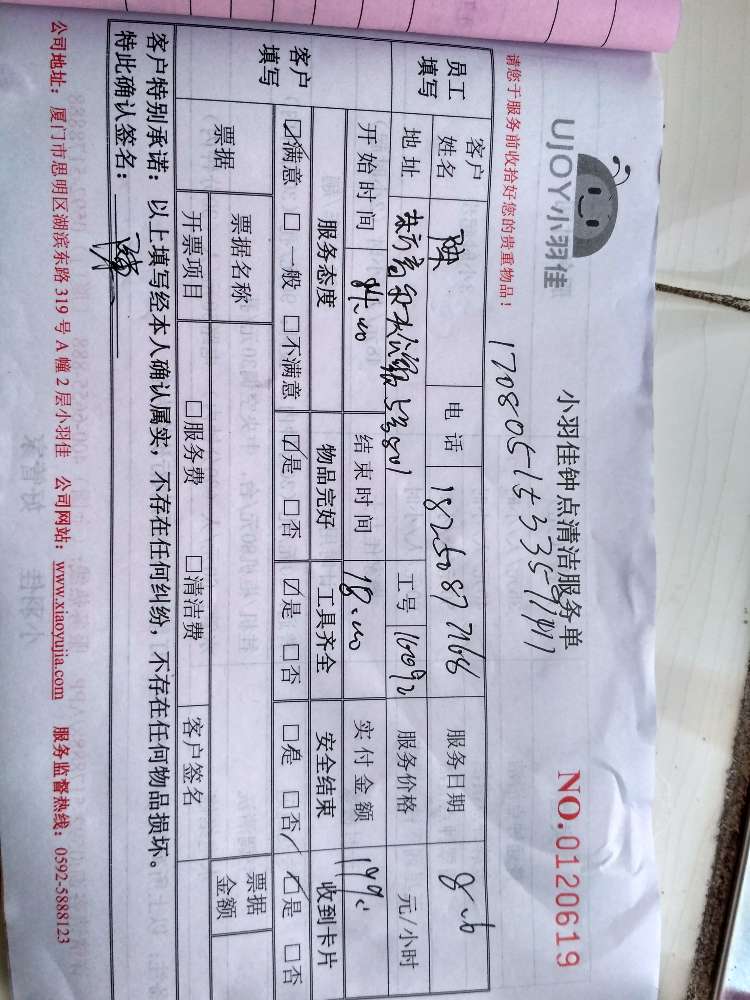 UJOY小羽佳
小羽佳钟点清洁服务单
NO.0120619
请您于服务前收拾好您的贵重物品！
员工填写
客户姓名
陈
电话
服务日期
8.6
地址
工号
服务价格
元/小时
开始时间
14.00
结束时间
18.00
实付金额
客户填写
服务态度
物品完好
工具齐全
安全结束
收到卡片
☑满意 □一般 □不满意
☑是 □否
☑是 □否
□是 □否
☑是 □否
票据
票据名称
票据金额
开票项目
□服务费 □清洁费
客户签名
客户特别承诺：以上填写经本人确认属实，不存在任何纠纷，不存在任何物品损坏。
特此确认签名：
公司地址：厦门市思明区湖滨东路 319 号 A 幢 2 层小羽佳 公司网站：www.xiaoyujia.com 服务监督热线：0592-5888123